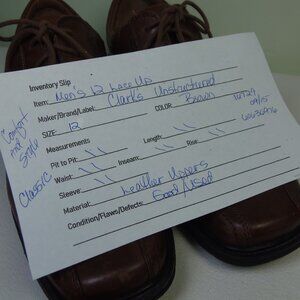 Inventory Slip
Item: Men's 12 Lace Up
Maker/Brand/Label: Clarks Unstructured
SIZE: 12 COLOR Brown
Measurements
Pit to Pit: Length:
Waist: Inseam: Rise:
Sleeve:
Material: Leather Uppers
Condition/Flaws/Defects: Good/Used
Comfort
Style
Classic
09/15